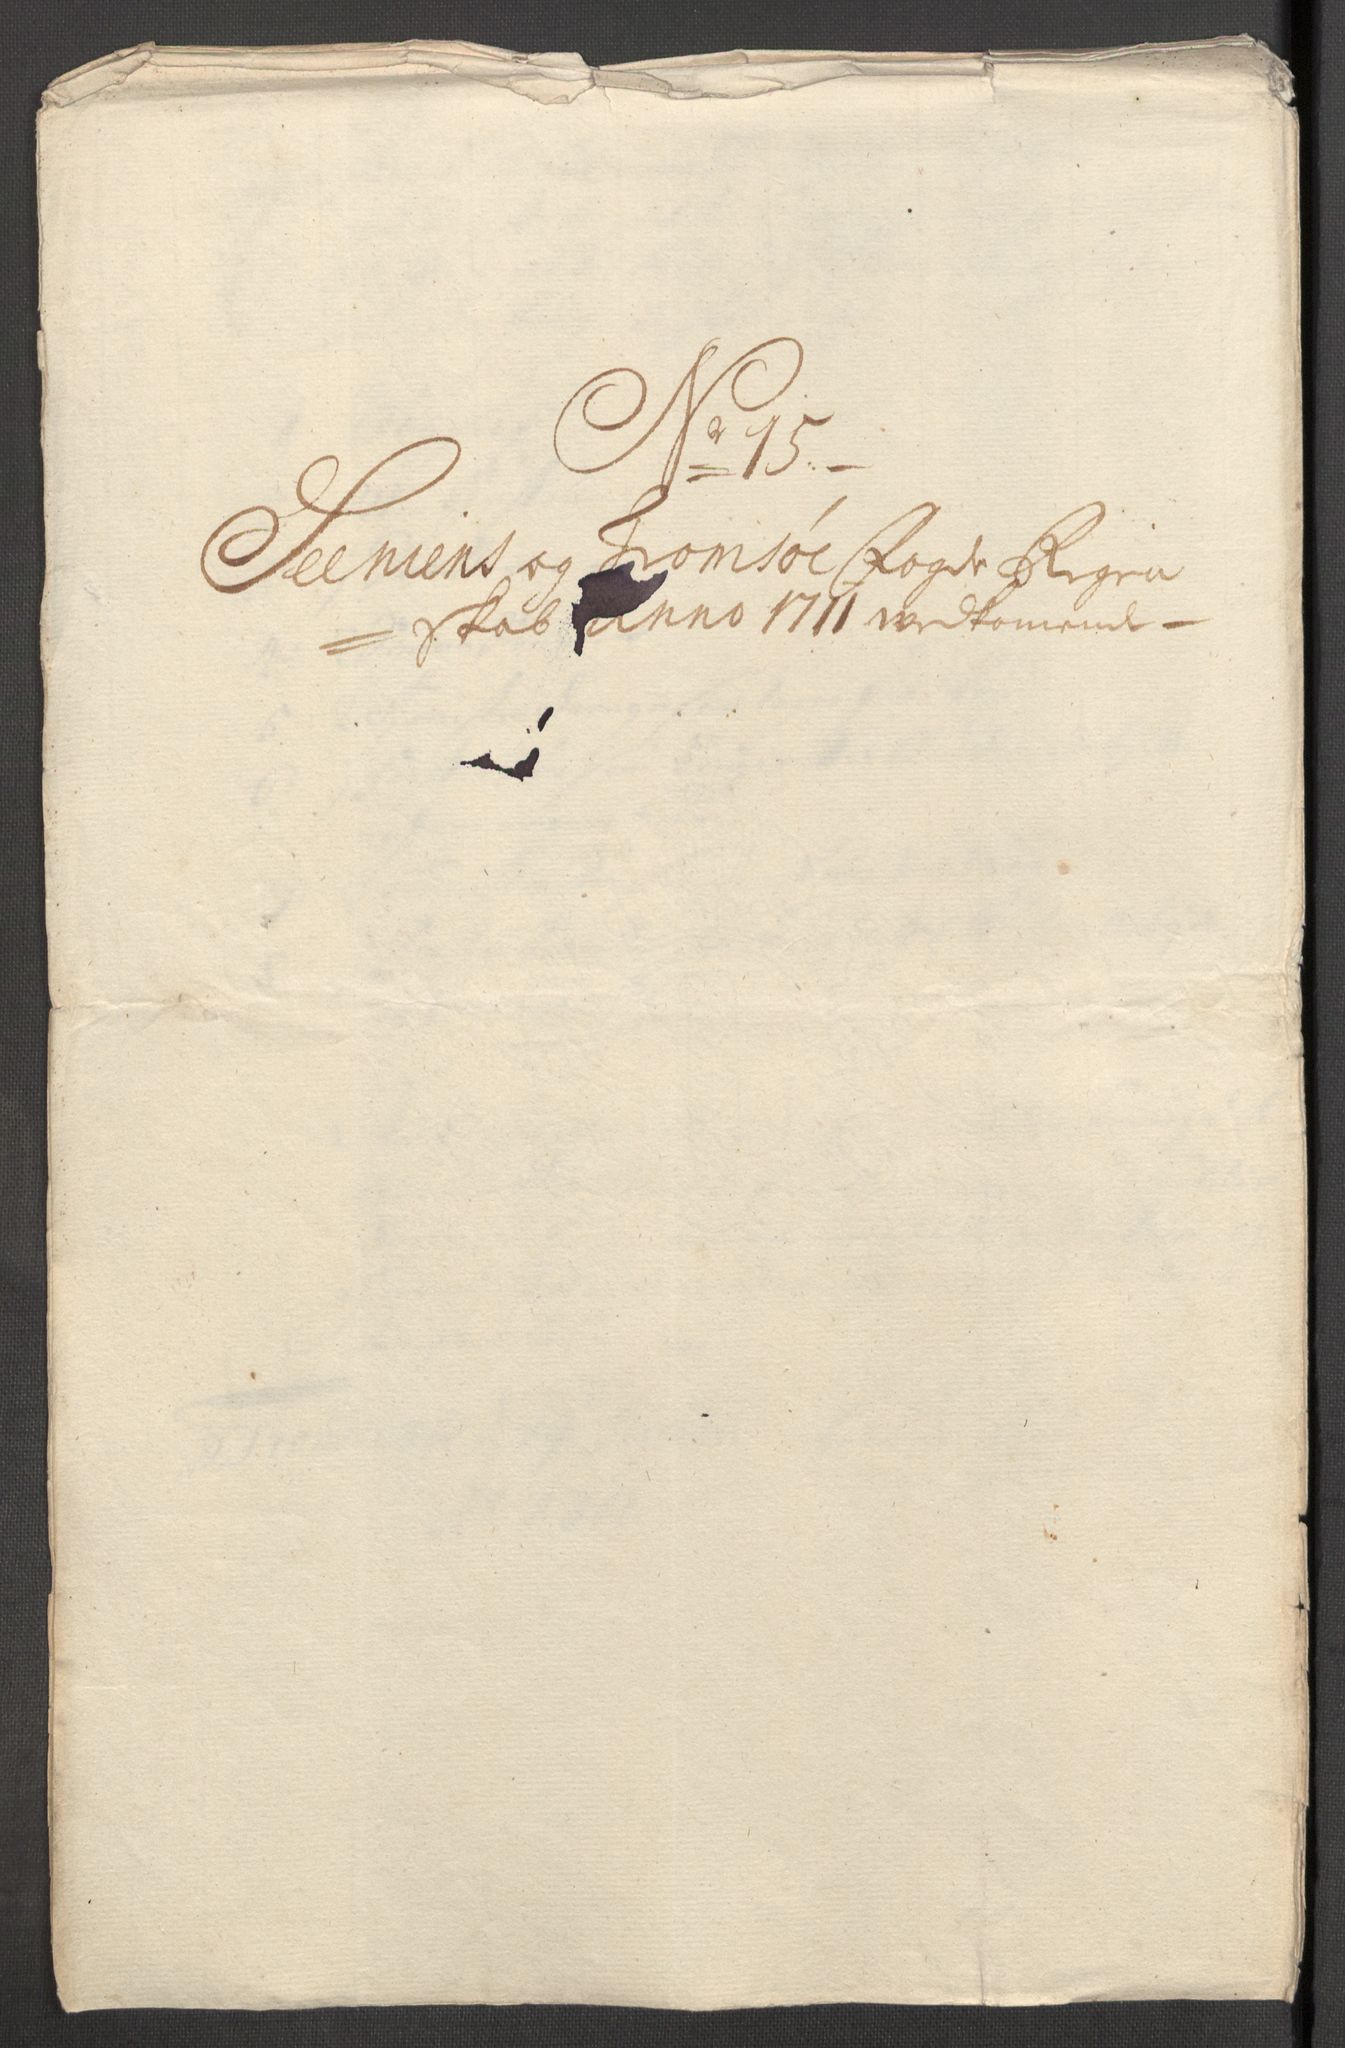 No 15.
Seeniens og Tromsöe Fogde Regen
skab Anno 1711 vedkomende